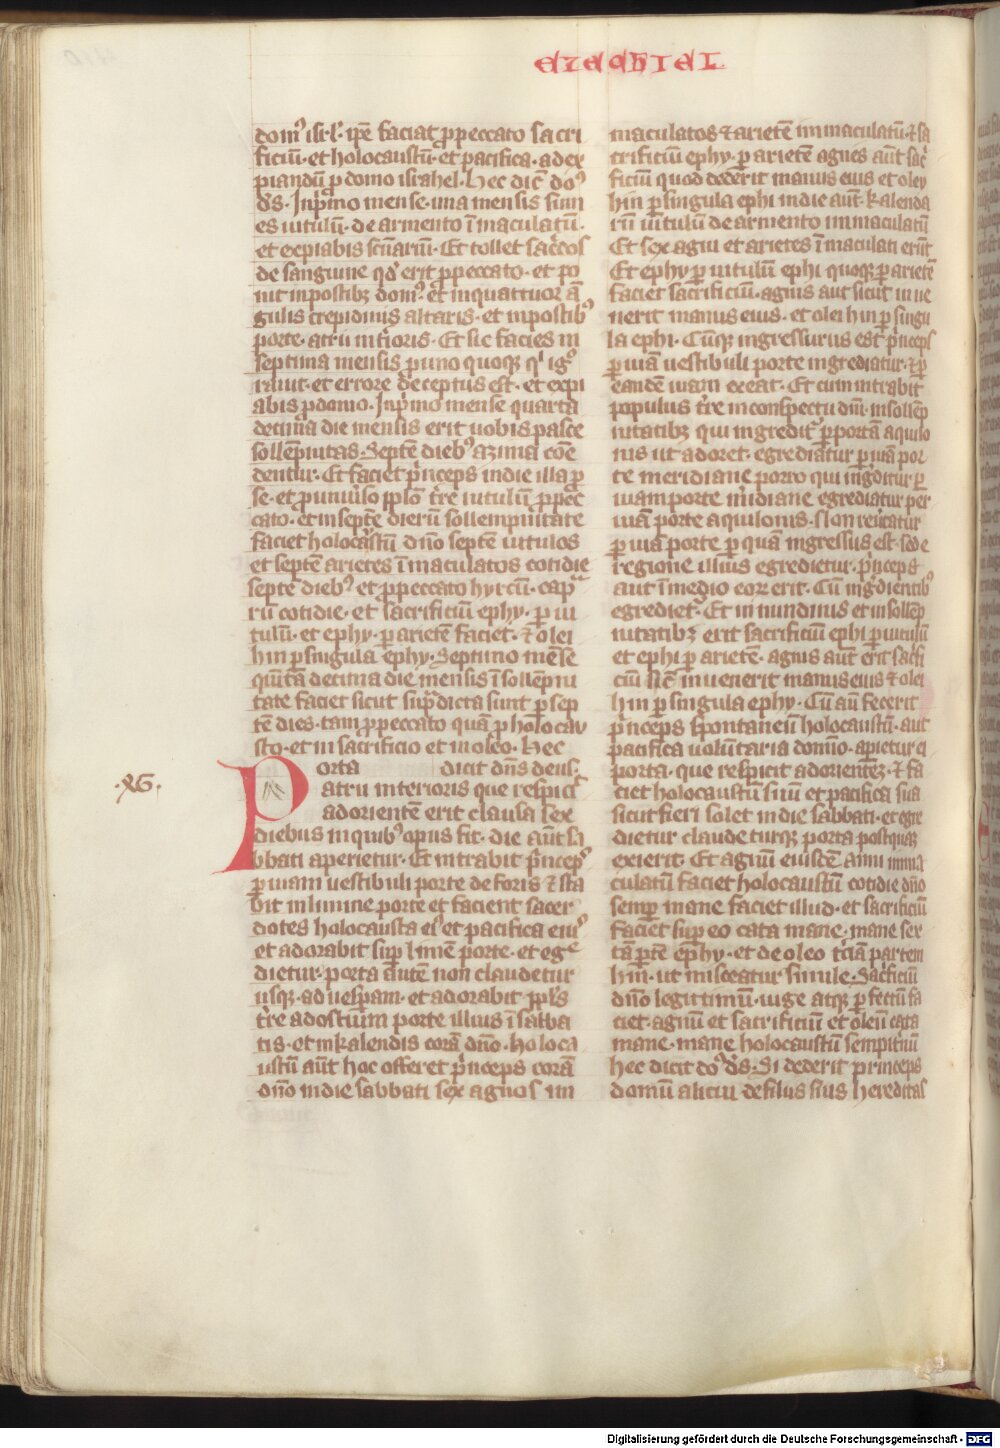 EZECHIEL
dom⁹ isrl᷑. ip̄e faciat ꝓpeccato sacri
ficiū. et holocaustū. et pacifica. ad ex
piandū ꝓ domo israhel. Hec dic̄ do⁹
d̄s. In p͛mo mense. una mensis sum
es uitulū. de armento īmaculatū.
et expiabis scūariū. Et tollet sac͛dos
de sanguine qd̓ erit ꝓpeccato. et po
nit in postibꝫ dom⁹. et in quattuor ā
gulis crepidinis altaris. et in postib⁹
porte. atrii int͛ioris. Et sic facies in
septima mensis ꝓ uno quoqꝫ q͛ ig⁹
rauit. et errore deceptus est. et expi
abis ꝓ domo. In p͛mo mense quarta
decima die mensis erit uobis pasce
sollēpnitas. Septē dieb⁹ azima come
dentur. Et faciet p͛nceps in die illa ꝓ
se. et ꝓ uniu͛so ip̄lo t͛re uitulū ꝓ pec
cato. et in septē dierū sollempnitate
faciet holocaustū dn̄o septē uitulos
et septē arietes īmaculatos cotidie
septē dieb⁹ et ꝓpeccato hyrcū. cap͛
rū cotidie. et sacrificiū ephy. ꝑ ui
tulū. et ephy. ꝑ arietē faciet. et olei
hin ꝑ singula ephy. Septimo mēse
quīta decima die mensis ī sollēpni
tate faciet sicut sup͛dicta sunt ꝑ sep
tē dies. tam ꝓpeccato quā ꝓ holocau
sto. et in sacrificio et in oleo. Hec
Porta dicit dn̄s deus.
.xlvi.
atrii interioris que respic͛
ad orientē erit clausa sex
diebus in quib⁹ opus fit. die aūt sa
bbati aperietur. Et intrabit p͛nceps
ꝑ uiam uestibuli porte de foris et sta
bit in limine porte et facient sacer
dotes holocausta ei⁹ et pacifica ei⁹
et adorabit sup͛ limē porte. et eg͛e
dietur. porta autē non claudetur
usqꝫ. ad uesꝑam. et adorabit ppl̄s
t͛re ad ostium porte illius ī sabba
tis. et in kalendis corā dn̄o. holoca
ustū aūt hoc offeret p͛nceps corā
dn̄o in die sabbati sex agnos im
maculatos et arietē immaculatū. et sa
crificiū ephy. ꝑ arietē agnes aūt sac͛
ficiū quod dederit manus eius et oley
hin ꝑ singula ephi in die aūt. kalenda
rū uitulū de armento immaculatū
Et sex agni et arietes īmaculati erūt
Et ephy ꝑ uitulū ephi quoqꝫ ꝑ arietē
faciet sacrificiū. agnis aut sicut inue
nerit manus eius. et olei hin ꝑ singu
la ephi. Cūqꝫ ingressurus est p͛nceps
ꝑ uiā uestibuli porte ingrediatur. et ꝑ
eandē uiam exeat. Et cum intrabit
populus t͛re in conspectu dn̄i. in sollēp
nitatibꝫ qui ingredit͛ ꝑ portā aquilo
nis ut adoret. egrediatur ꝑ uiā por
te meridiane porro qui ing͛ditur ꝑ
uiam porte m͛idiane egrediatur per
uiā porte aquilonis. Non reu͛tatur
ꝑ uiā porte ꝑ quā ingressus est. sed e
regione illius egredietur. p͛nceps
aut ī medio eoꝝ erit. Cū ing͛dientib⁹
egrediet͛. Et in nundinis et in sollēp
nitatibꝫ erit sacrificiū ephi ꝑ uitulū
et ephi ꝑ arietē. agnis aūt erit sac͛fi
ciū sic̄ inuenerit manus eius et olei
hin ꝑ singula ephy. Cū aū fecerit
p͛nceps spontaneū holocaustū. aut
pacifica voluntaria domino. apietur ei
porta. que respicit ad orientē. et fa
ciet holocaustū suū et pacifica sua
sicut fieri solet in die sabbati. et egre
dietur claude turqꝫ porta postquaꝫ
exierit. Et agnū eiusdē anni inma
culatū faciet holocaustū cotidie dn̄o
semꝑ mane faciet illud. et sacrificiū
faciet sup͛ eo cata mane. mane sex
tā p͛tē ephy. et de oleo t͛ciā partem
hin. ut misceatur simile. Sac͛ficiū
dn̄o legittimū. iuge atqꝫ ꝑ fectū fa
ciet. agnū et sacrificiū et oleū cata
mane. mane holocaustū sempit͛nū
hec dicit do⁹ d̄s. Si dederit princeps
domū alicui de filiis suis hereditas
Digitalisierung gefördert durch die Deutsche Forschungsgemeinschaft - DFG